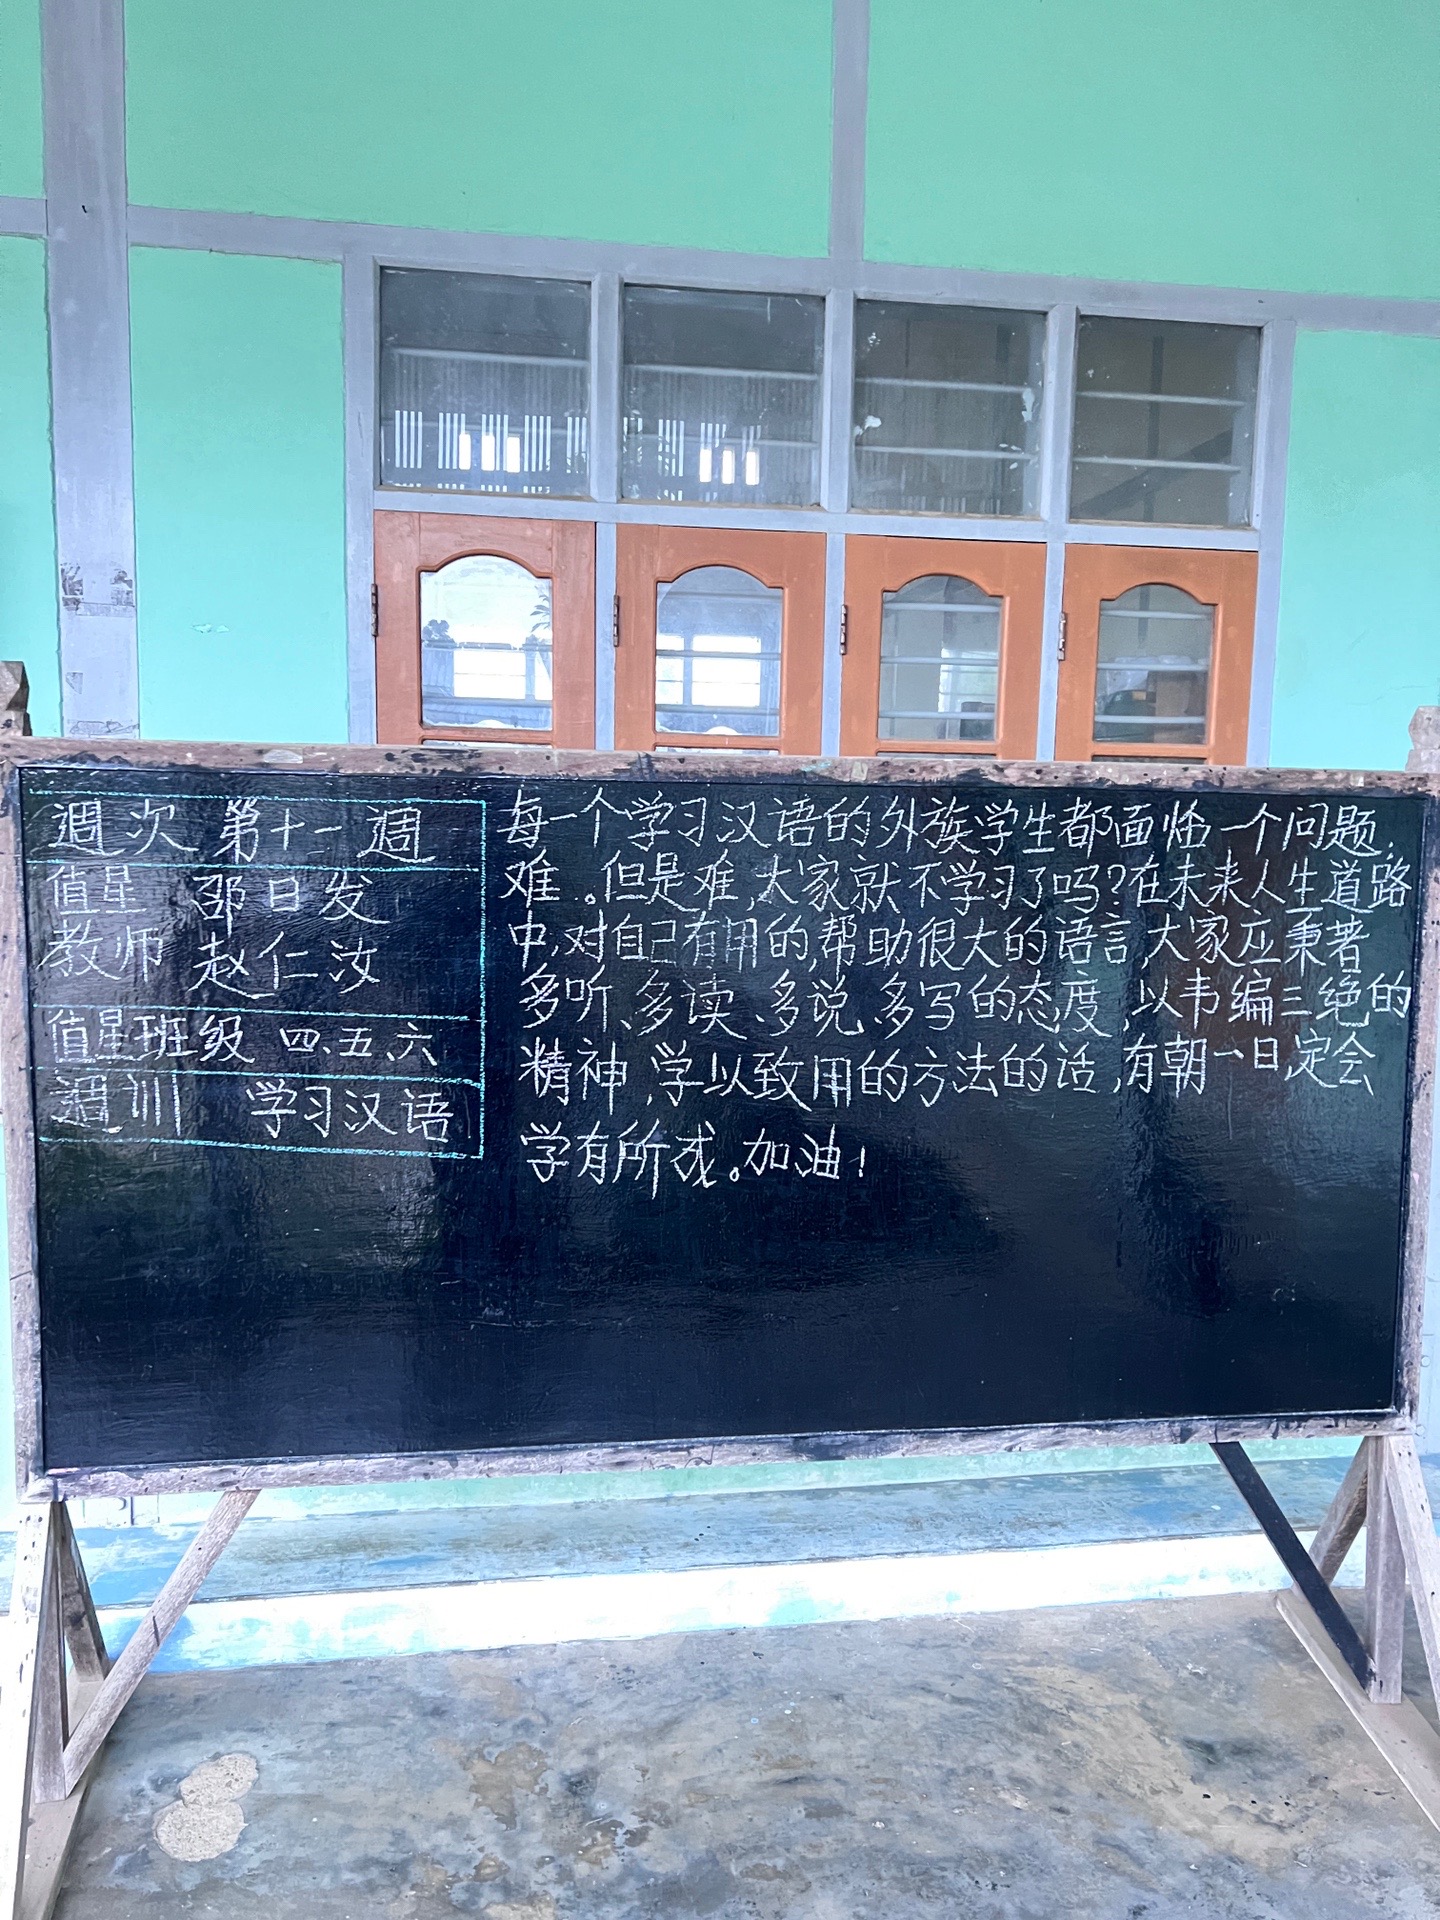 週次 第十一週
值星 邵日发
教师 赵仁汝
值星班级 四、五、六
週训 学习汉语
每一个学习汉语的外族学生都面临一个问题,
难。但是难,大家就不学习了吗?在未来人生道路
中,对自己有用的,帮助很大的语言,大家应秉著
多听、多读、多说、多写的态度,以韦编三绝的
精神,学以致用的方法的话,有朝一日定会
学有所成。加油!